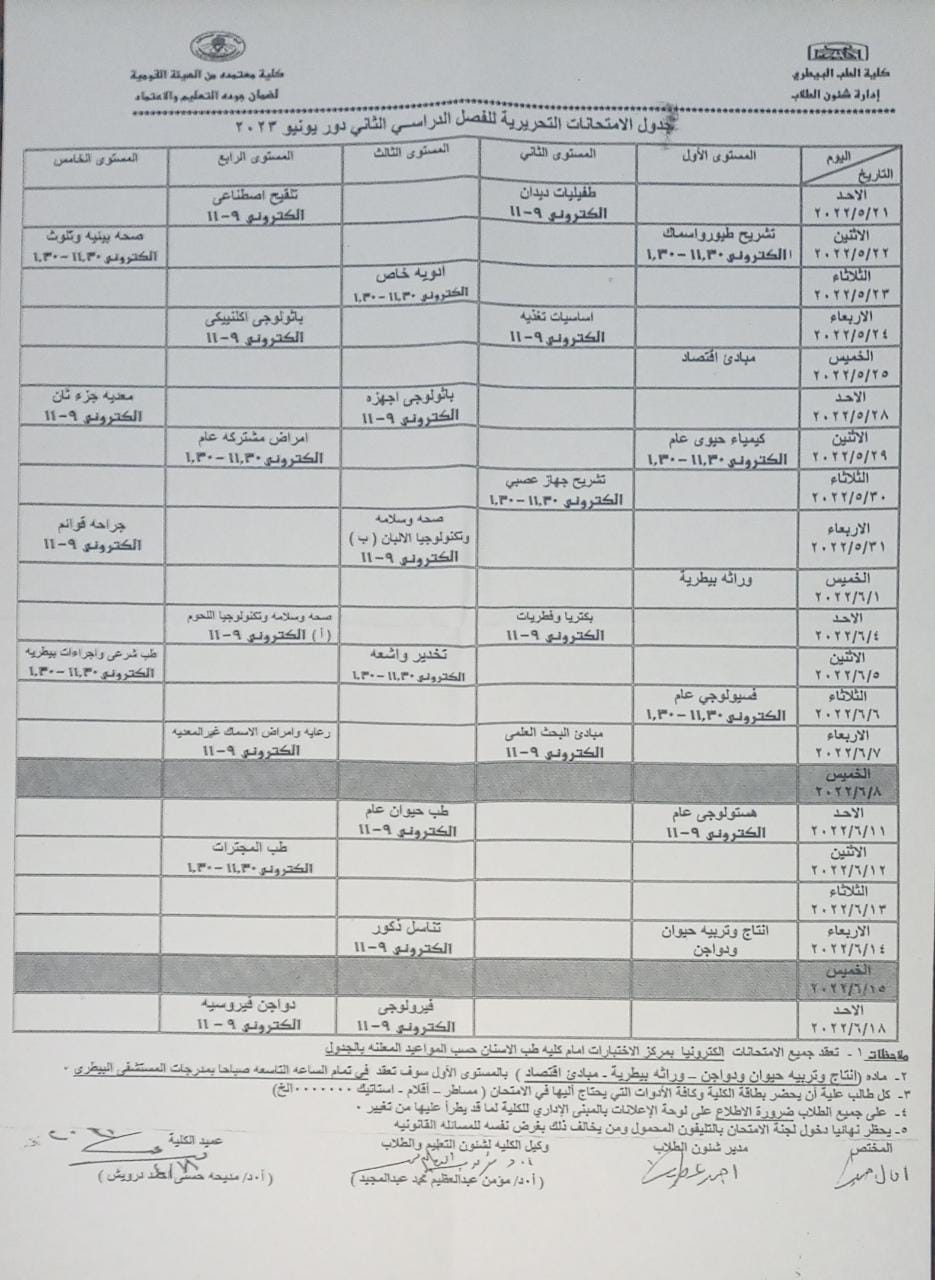 كلية الطب البيطري
إدارة شئون الطلاب
كلية معتمده من الهيئة القومية
لضمان جوده التعليم والاعتماد
جدول الامتحانات التحريرية للفصل الدراسي الثاني دور يونيو ٢٠٢٣
اليوم
التاريخ
المستوى الأول
المستوى الثاني
المستوى الثالث
المستوى الرابع
المستوى الخامس
الاحد
٢٠٢٢/٥/٢١
طفيليات ديدان
الكترونى ٩-١١
تلقيح اصطناعى
الكترونى ٩-١١
الاثنين
٢٠٢٢/٥/٢٢
تشريح طيور واسماك
الكترونى ١١,٣٠-١,٣٠
صحه بيئيه وتلوث
الكترونى ١١,٣٠-١,٣٠
الثلاثاء
٢٠٢٢/٥/٢٣
ادويه خاص
الكترونى ١١,٣٠-١,٣٠
الاربعاء
٢٠٢٢/٥/٢٤
اساسيات تغذيه
الكترونى ٩-١١
باثولوجى اكلنييكى
الكترونى ٩-١١
الخميس
٢٠٢٢/٥/٢٥
مبادئ اقتصاد
الاحد
٢٠٢٢/٥/٢٨
باثولوجى اجهزه
الكترونى ٩-١١
معديه جزء ثان
الكترونى ٩-١١
الاثنين
٢٠٢٢/٥/٢٩
كيمياء حيوى عام
الكترونى ١١,٣٠-١,٣٠
امراض مشتركه عام
الكترونى ١١,٣٠-١,٣٠
الثلاثاء
٢٠٢٢/٥/٣٠
تشريح جهاز عصبي
الكترونى ١١,٣٠-١,٣٠
الاربعاء
٢٠٢٢/٥/٣١
صحه وسلامه
وتكنولوجيا الالبان ( ب )
الكترونى ٩-١١
جراحه قوائم
الكترونى ٩-١١
الخميس
٢٠٢٢/٦/١
وراثه بيطرية
الاحد
٢٠٢٢/٦/٤
بكتريا وفطريات
الكترونى ٩-١١
صحه وسلامه وتكنولوجيا اللحوم
( أ ) الكترونى ٩-١١
الاثنين
٢٠٢٢/٦/٥
تخدير واشعه
الكترونى ١١,٣٠-١,٣٠
طب شرعى واجراءات بيطريه
الكترونى ١١,٣٠-١,٣٠
الثلاثاء
٢٠٢٢/٦/٦
فسيولوجي عام
الكترونى ١١,٣٠-١,٣٠
الاربعاء
٢٠٢٢/٦/٧
مبادئ البحث العلمى
الكترونى ٩-١١
رعايه وامراض الاسماك غيرالمعديه
الكترونى ٩-١١
الخميس
٢٠٢٢/٦/٨
الاحد
٢٠٢٢/٦/١١
هستولوجى عام
الكترونى ٩-١١
طب حيوان عام
الكترونى ٩-١١
الاثنين
٢٠٢٢/٦/١٢
طب المجترات
الكترونى ١١,٣٠-١,٣٠
الثلاثاء
٢٠٢٢/٦/١٣
الاربعاء
٢٠٢٢/٦/١٤
انتاج وتربيه حيوان
ودواجن
تناسل ذكور
الكترونى ٩-١١
الخميس
٢٠٢٢/٦/١٥
الاحد
٢٠٢٢/٦/١٨
فيرولوجى
الكترونى ٩-١١
دواجن فيروسيه
الكترونى ٩-١١
ملاحظات ١- تعقد جميع الامتحانات الكترونيا بمركز الاختبارات امام كليه طب الاسنان حسب المواعيد المعلنه بالجدول
٢- ماده (انتاج وتربيه حيوان ودواجن – وراثه بيطرية - مبادئ اقتصاد ) بالمستوى الأول سوف تعقد فى تمام الساعه التاسعه صباحا بمدرجات المستشفى البيطرى ٠
٣- كل طالب علية أن يحضر بطاقة الكلية وكافة الأدوات التي يحتاج أليها في الامتحان ( مساطر – أقلام – استاتيك ٠٠٠٠٠٠٠الخ)
٤- على جميع الطلاب ضرورة الاطلاع على لوحة الإعلانات بالمبنى الإداري للكلية لما قد يطرأ عليها من تغيير ٠
٥- يحظر نهائيا دخول لجنة الامتحان بالتليفون المحمول ومن يخالف ذلك يعرض نفسه للمسائله القانونيه
المختص
مدير شئون الطلاب
وكيل الكليه لشئون التعليم والطلاب
عميد الكلية
( أ٠د/ مؤمن عبدالعظيم محمد عبدالمجيد )
( أ٠د/ مديحه حسنى احمد درويش )